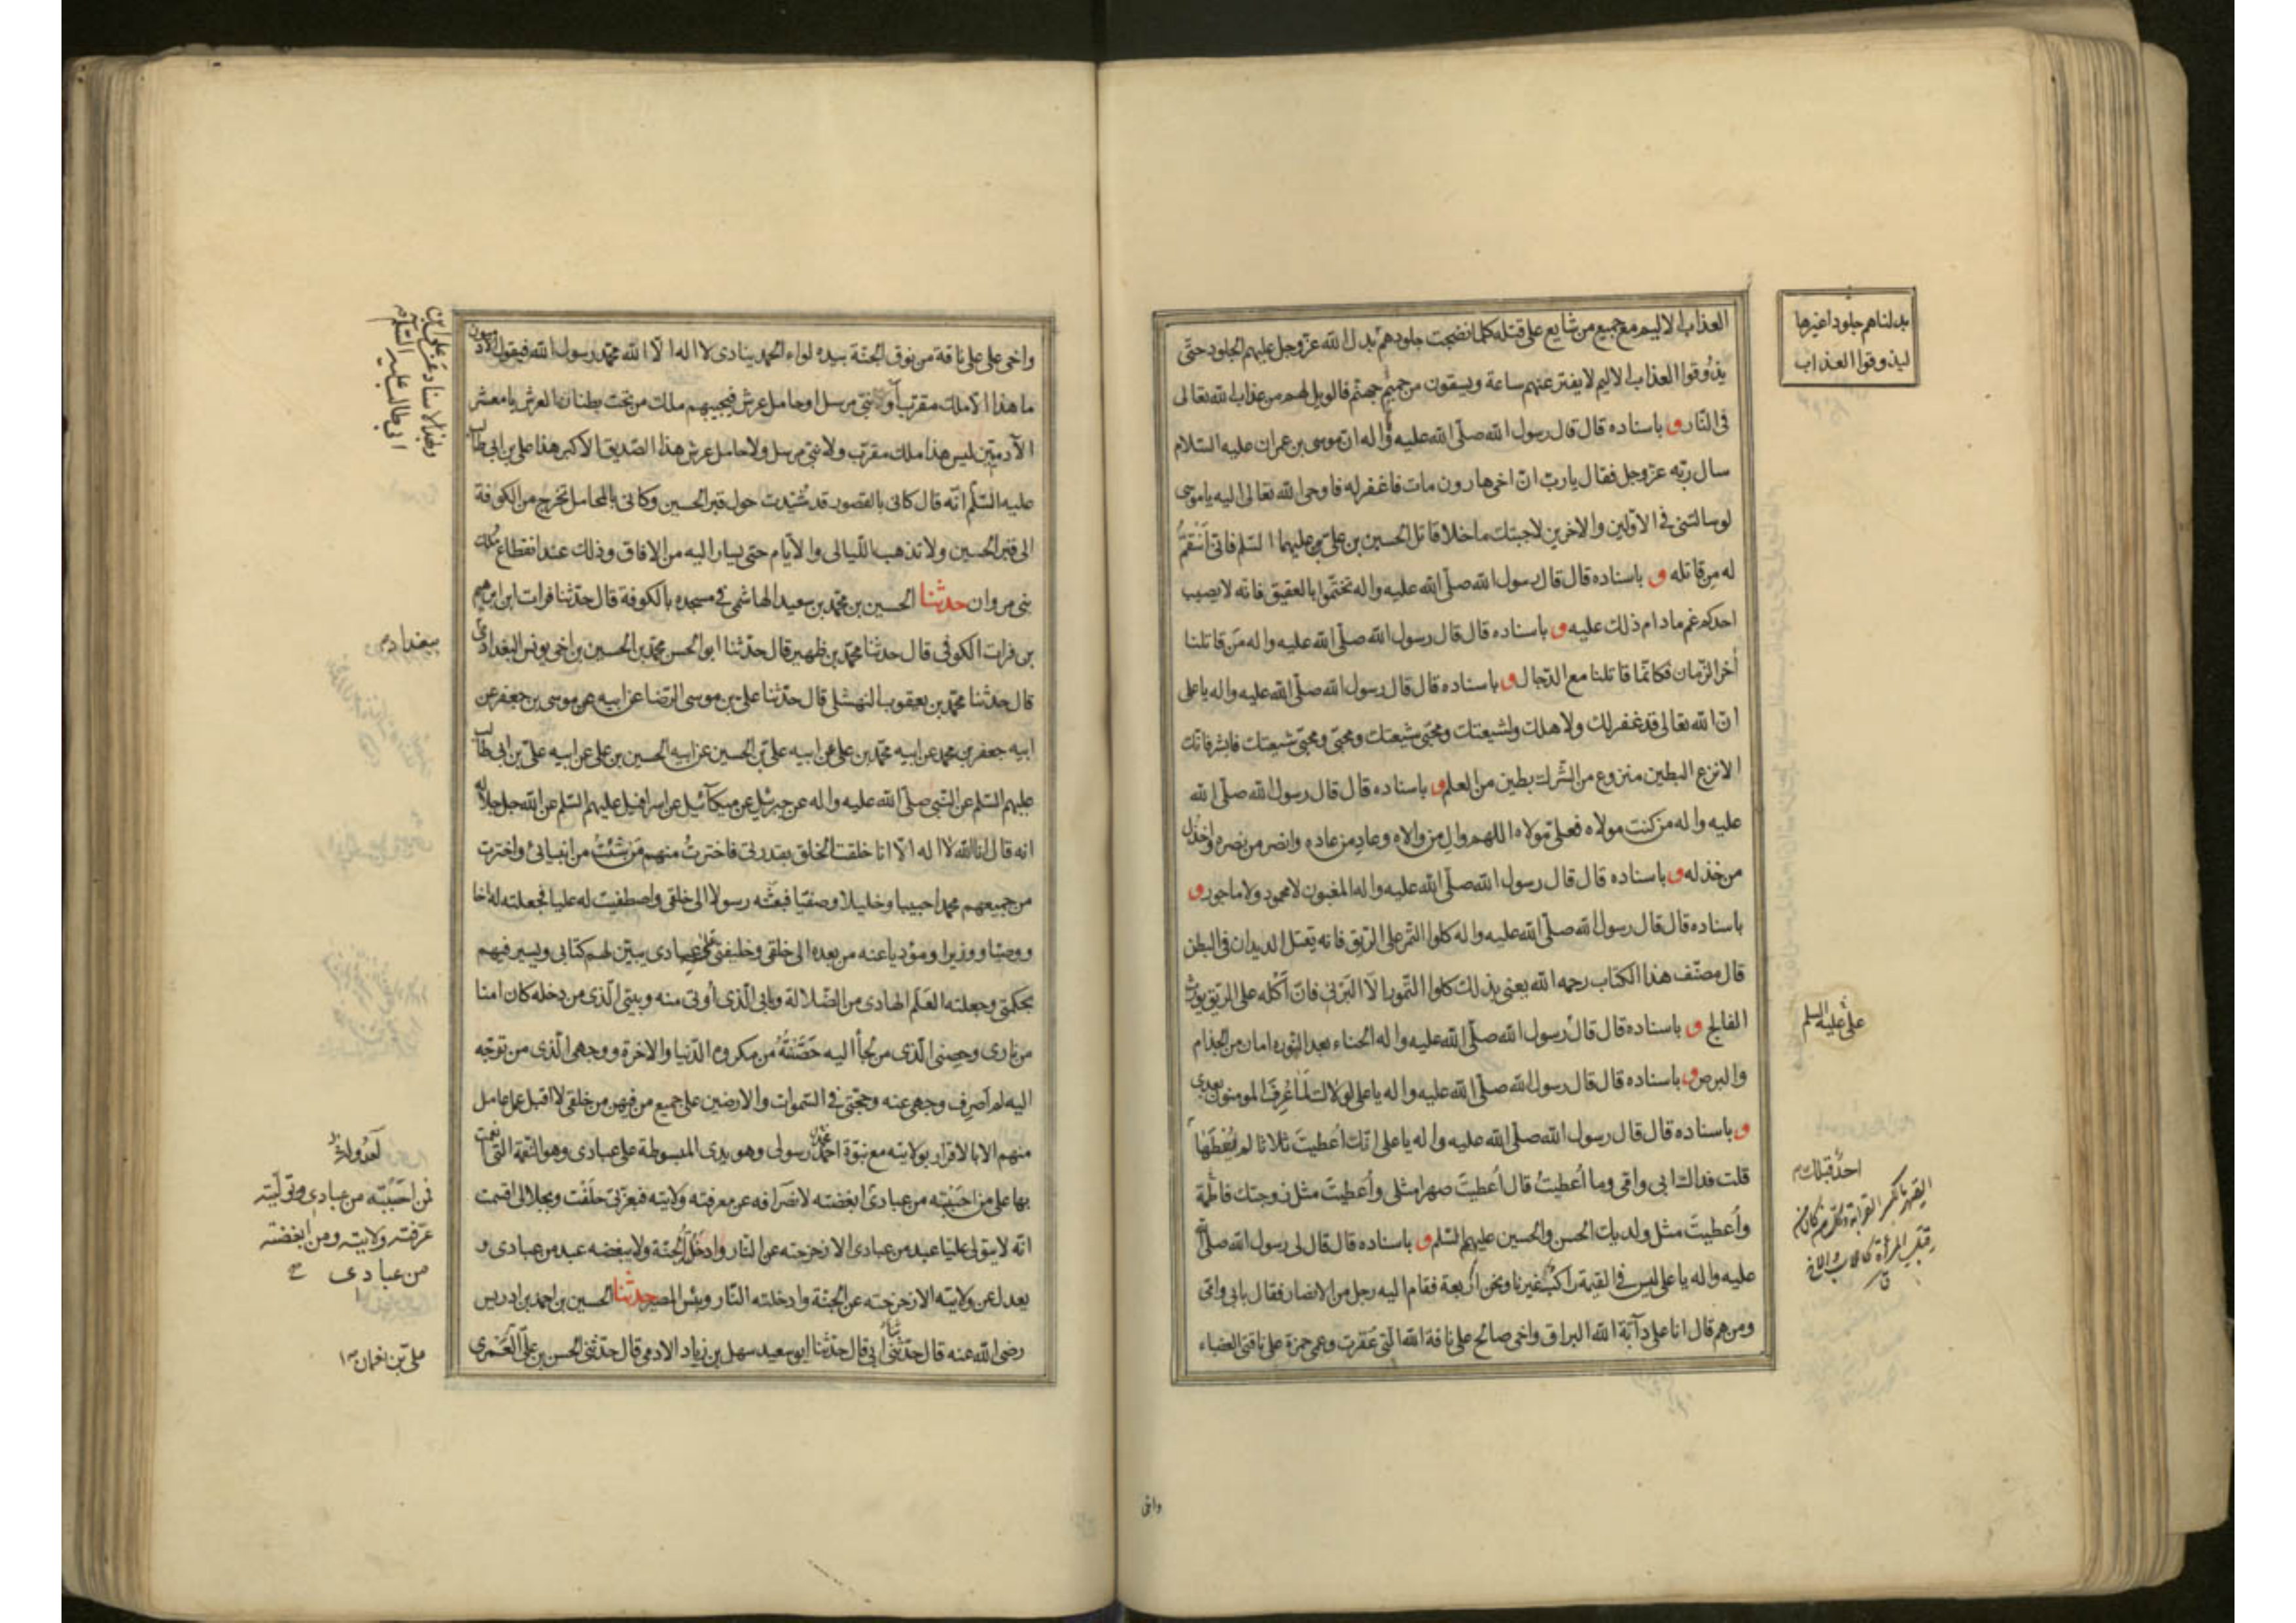 العذاب الاليم مع جميع من شايع على قتله كلما نضجت جلودهم بدل الله عزوجل عليهم الجلود حتى
يذوقوا العذاب الاليم لا يفتر عنهم ساعة ويسقون من حميم جهنم فالويل لهم من عذاب الله تعالى
فى النار و باسناده قال قال رسول الله صلى الله عليه واله ان موسى بن عمران عليه السلام
سال ربه عزوجل فقال يا رب ان اخى هارون مات فاغفر له فاوحى الله تعالى اليه يا موسى
لو سالتنى فى الاولين والاخرين لاجبتك ما خلا قاتل الحسين بن على بن عليهما السلم فانى انتقم
له من قاتله و باسناده قال قال رسول الله صلى الله عليه واله تختموا بالعقيق فانه لا يصيب
احدكم غم مادام ذلك عليه و باسناده قال قال رسول الله صلى الله عليه واله من قاتلنا
اخر الزمان فكانما قاتلنا مع الدجال و باسناده قال قال رسول الله صلى الله عليه واله يا على
ان الله تعالى قد غفر لك ولاهلك ولشيعتك ومحبى شيعتك ومحبى ومحبى شيعتك فابشر فانك
الانزع البطين منزوع من الشرك بطين من العلم و باسناده قال قال رسول الله صلى الله
عليه واله من كنت مولاه فعلى مولاه اللهم وال من والاه وعاد من عاده وانصر من نصره واخذل
من خذله و باسناده قال قال رسول الله صلى الله عليه واله المغبون لا محمود ولا ماجور و
باسناده قال قال رسول الله صلى الله عليه واله كلوا التمر على الريق فانه يقتل الديدان فى البطن
قال مصنف هذا الكتاب رحمه الله يعنى بذلك كلوا التمور الا البرنى فان اكله على الريق يورث
الفالج و باسناده قال قال رسول الله صلى الله عليه واله الحناء بعد النوره امان من الجذام
والبرص و باسناده قال قال رسول الله صلى الله عليه واله يا على لولاك لما عرف المومنون بعدى
و باسناده قال قال رسول الله صلى الله عليه واله يا على انك اعطيت ثلاثا لم يعطها
قلت فداك ابى وامى وما اعطيت قال اعطيت صهرا مثلى واعطيت مثل زوجتك فاطمة
واعطيت مثل ولديك الحسن والحسين عليهم السلم و باسناده قال قال لى رسول الله صلى الله
عليه واله يا على ليس فى القيمة راكب غيرنا ونحن اربعة فقام اليه رجل من الانصار فقال بابى وامى
ومن هم قال انا على دآبة الله البراق واخى صالح على ناقة الله التى عقرت وعمى حمزة على ناقتى العضباء
بدلناهم جلودا غيرها
ليذوقوا العذاب
على عليه السلم
احد قبلك م
واخى
واخى على على ناقة من نوق الجنة بيده لواء الحمد ينادى لا اله الا الله محمد رسول الله فيقول الادميون
ما هذا الا ملك مقرب او نبى مرسل او حامل عرش فيجيبهم ملك من تحت بطنان العرش يا معشر
الآدميين ليس هذا ملك مقرب ولا نبى مرسل ولا حامل عرش هذا الصديق الاكبر هذا على بن ابى طالب
عليه السلم انه قال كانى بالقصور قد شيدت حول قبر الحسين وكانى بالمحامل تخرج من الكوفة
الى قبر الحسين ولا تذهب الليالى والايام حتى يسار اليه من الافاق وذلك عند انقطاع ملك
بنى مروان حدثنا الحسين بن محمد بن سعيد الهاشمى فى مسجده بالكوفة قال حدثنا فرات ابن ابراهيم
بن فرات الكوفى قال حدثنا محمد بن ظهير قال حدثنا ابو الحسن محمد بن الحسين بن اخى يونس البغدادى
قال حدثنا محمد بن يعقوب النهشلى قال حدثنا على بن موسى الرضا عن ابيه موسى بن جعفر عن
ابيه جعفر بن محمد عن ابيه محمد بن على عن ابيه على بن الحسين عن ابيه الحسين بن على عن ابيه على بن ابى طالب
عليهم السلم عن النبى صلى الله عليه واله عن جبرئيل عن ميكآئيل عن اسرافيل عليهم السلم عن الله جل جلاله
انه قال انا الله لا اله الا انا خلقت الخلق بقدرتى فاخترت منهم من شئت من انبيائى واخترت
من جميعهم محمدا حبيبا وخليلا وصفيا فبعثته رسولا الى خلقى واصطفيت له عليا فجعلته له اخا
ووصيا ووزيرا ومؤديا عنه من بعده الى خلقى وخليفتى على عبادى يبين لهم كتابى ويسير فيهم
بحكمتى وجعلته العلم الهادى من الضلالة وبابى الذى اوتى منه وبيتى الذى من دخله كان امنا
من نارى وحصنى الذى من لجأ اليه حصنته من مكروه الدنيا والاخرة ووجهى الذى من توجه
اليه لم اصرف وجهى عنه وحجتى فى السموات والارضين على جميع من فيهن من خلقى لا اقبل عمل عامل
منهم الا بالاقرار بولايته مع نبوة احمد رسولى وهو يدى المبسوطة على عبادى وهو النعمة التى انعمت
بها على من احببته من عبادى ابغضته لانصرافه عن معرفته وولايته فبعزتى حلفت وبجلالى اقسمت
انه لا يتولى عليا عبد من عبادى الا زحزحته عن النار وادخلته الجنة ولا يبغضه عبد من عبادى و
يعدل عن ولايته الا زحزحته عن الجنة وادخلته النار وبئس المصير حدثنا الحسين بن احمد بن ادريس
رضى الله عنه قال حدثنى ابى قال حدثنا ابو سعيد سهل بن زياد الادمى قال حدثنى الحسن بن على العمرى
وبهذا الاسناد عن على بن
ابى طالب عليه السلم
ببغداد م
فمن احببته من عبادى وتوليته
عرفته ولايته ومن ابغضته
من عبادى